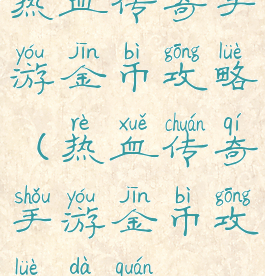 热血传奇手
yóu jīn bì gōng lüè
游金币攻略
rè xuě chuán qí
（热血传奇
shǒu yóu jīn bì gōng
手游金币攻
lüè dà quán